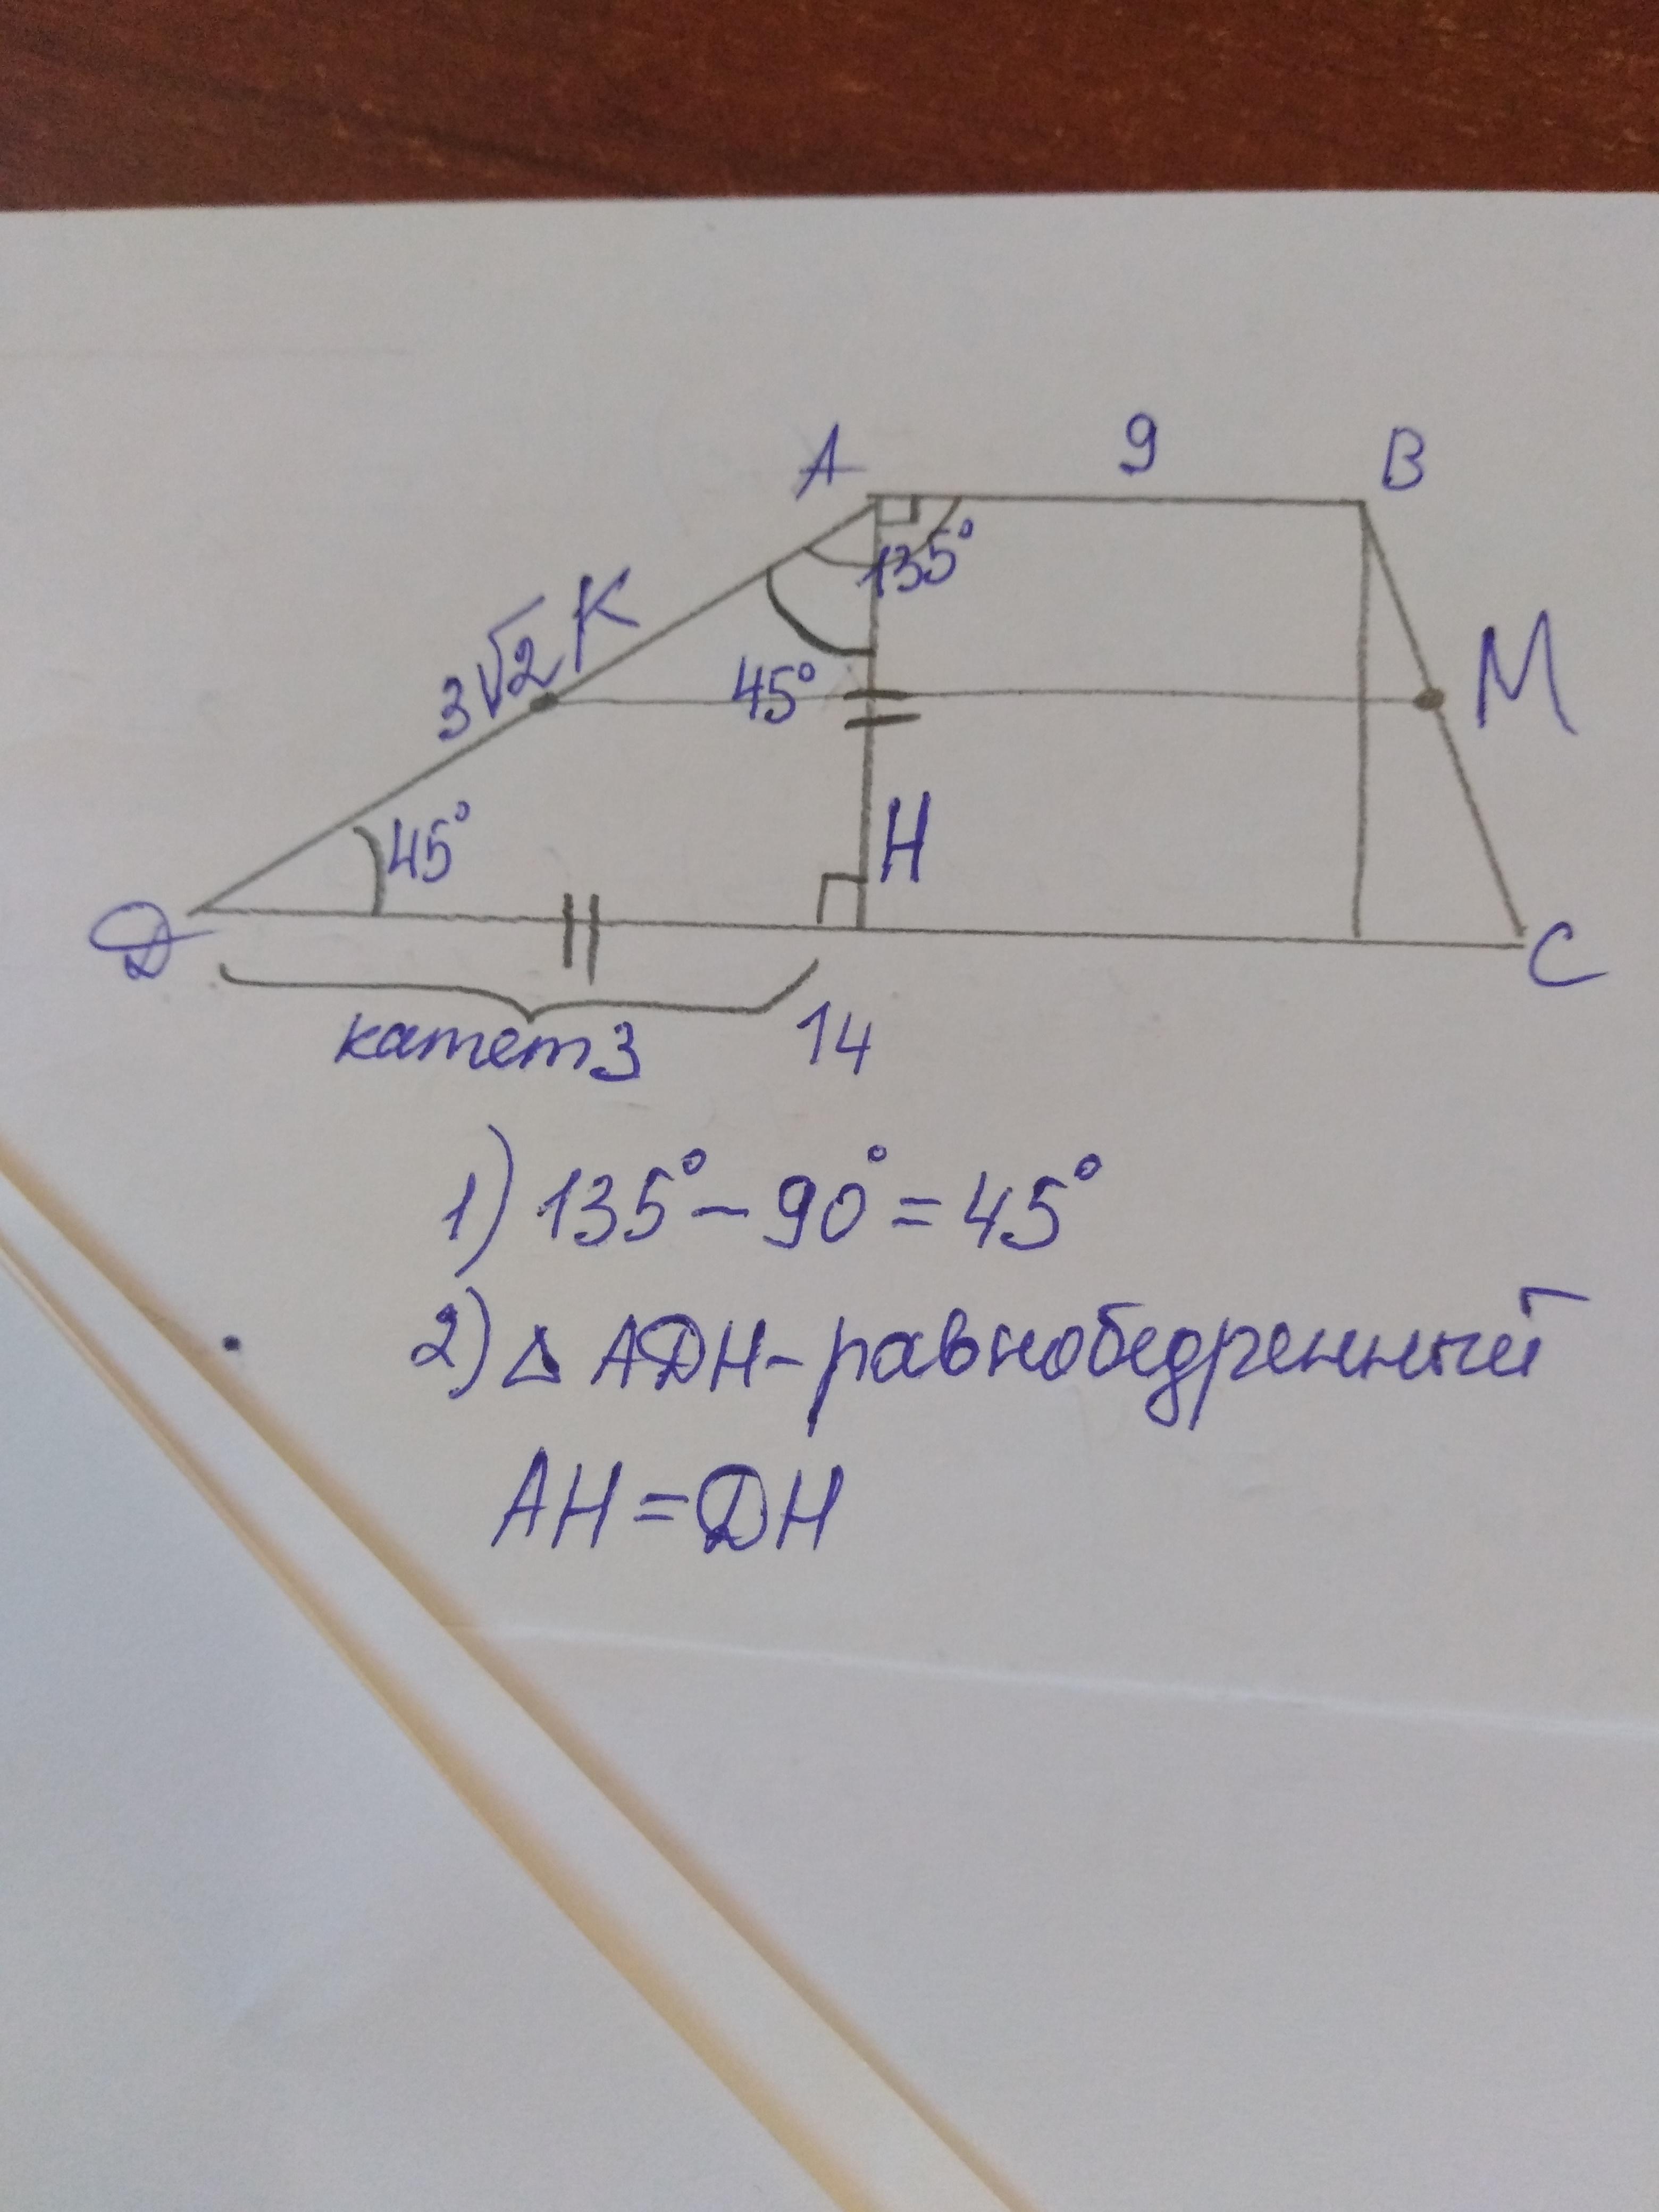 A 9 B
135°
3√2 K
45°
M
45°
H
D
C
катет 3 14
1) 135° - 90° = 45°
2) △ ADH - равнобедренный
AH = DH